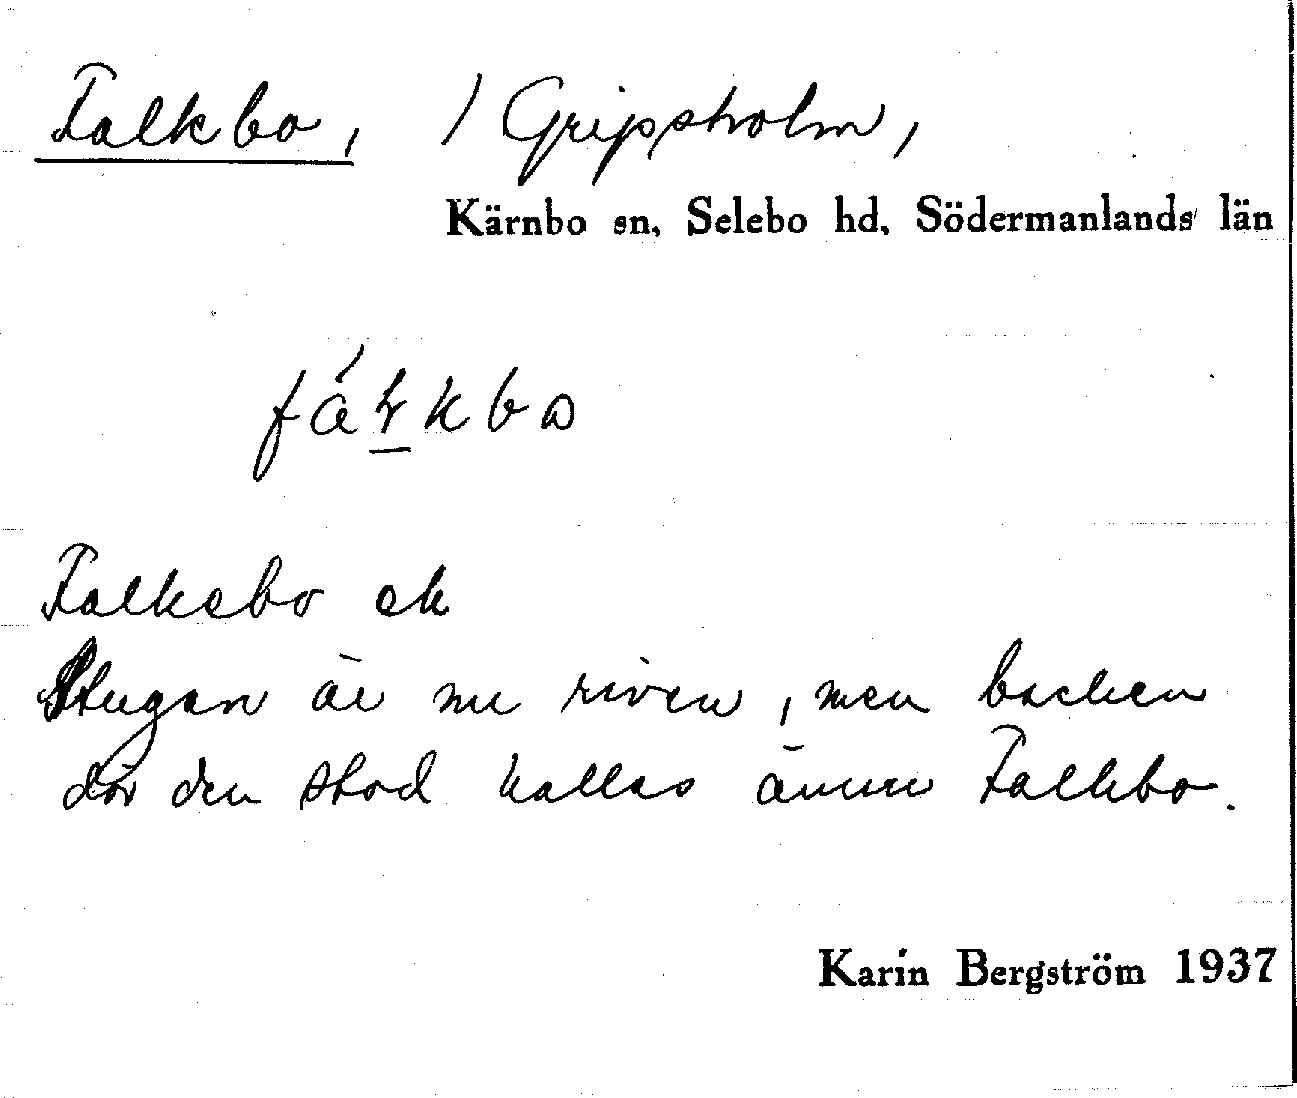 Falkbo, / Gripsholm,
Kärnbo sn, Selebo hd, Södermanlands län
Falksbo ek
Stugan är nu riven, men backen
där den stod kallas ännu Falkbo.
Karin Bergström 1937